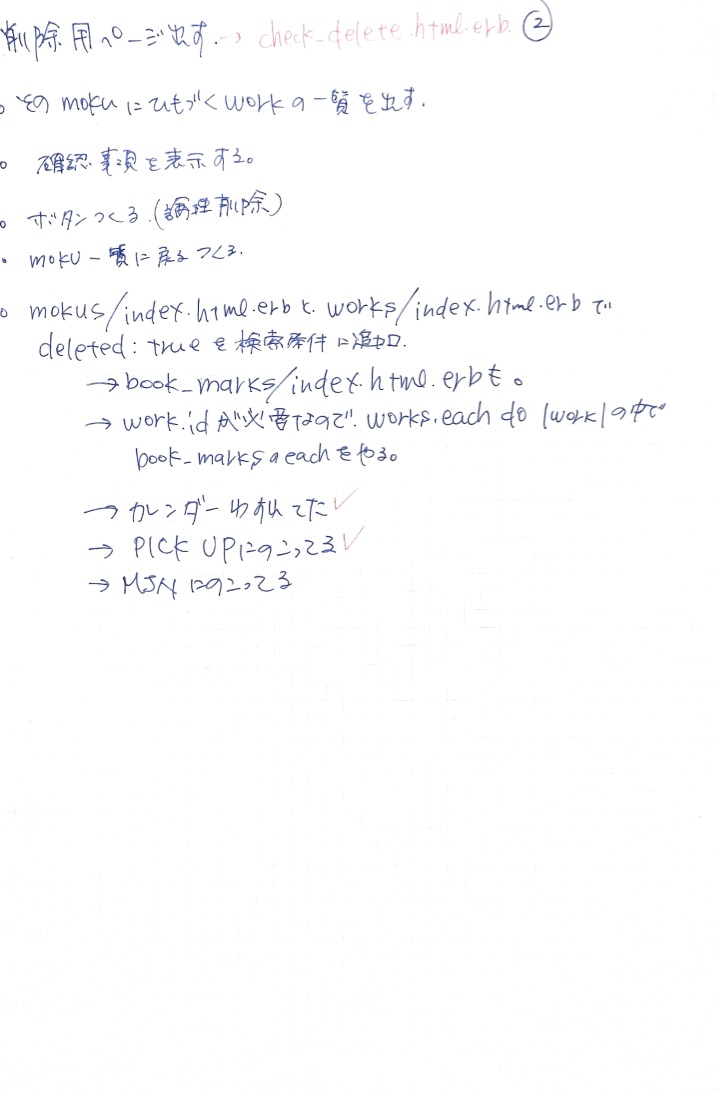 削除用ページ出す.→ check_delete.html.erb. ②
○ その moku にひもづくworkの一覧を出す.
○ 確認事項を表示する。
○ ボタンつくる.(論理削除)
• moku一覧に戻るつくる.
○ mokus/index.html.erbと. works/index.html.erbで
deleted: trueを検索条件に追加.
→book_marks/index.html.erbも。
→ work.idが必要なので. works.each do |work|の中で
book_marksのeachをやる。
→ カレンダーわすれてた✓
→ PICK UPにのこってる✓
→ にのこってる